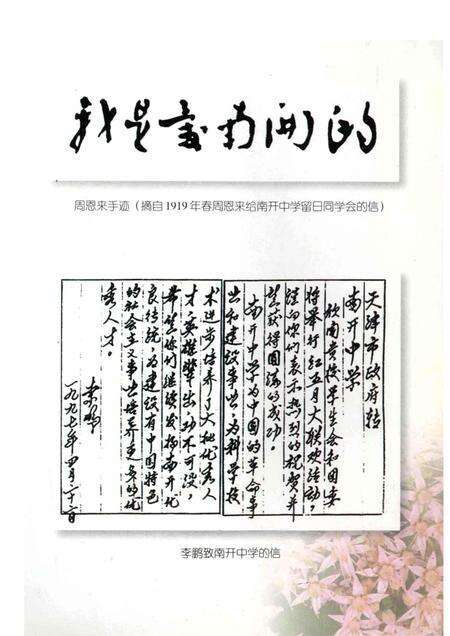 我是爱南开的
周恩来手迹（摘自1919年春周恩来给南开中学留日同学会的信）
天津市政府转
南开中学
欣闻贵校学生会和团委
将举行红五月大联欢活动，
谨向你们表示热烈的祝贺并
祝获得圆满的成功。
南开中学为中国的革命事
业和建设事业，为科学技
术进步培养了大批优秀人
才，英雄辈出，功不可没，
希望你们继续发扬南开优
良传统，为建设有中国特色
的社会主义事业培养更多的优
秀人才。
李鹏
一九九七年四月二十二日
李鹏致南开中学的信